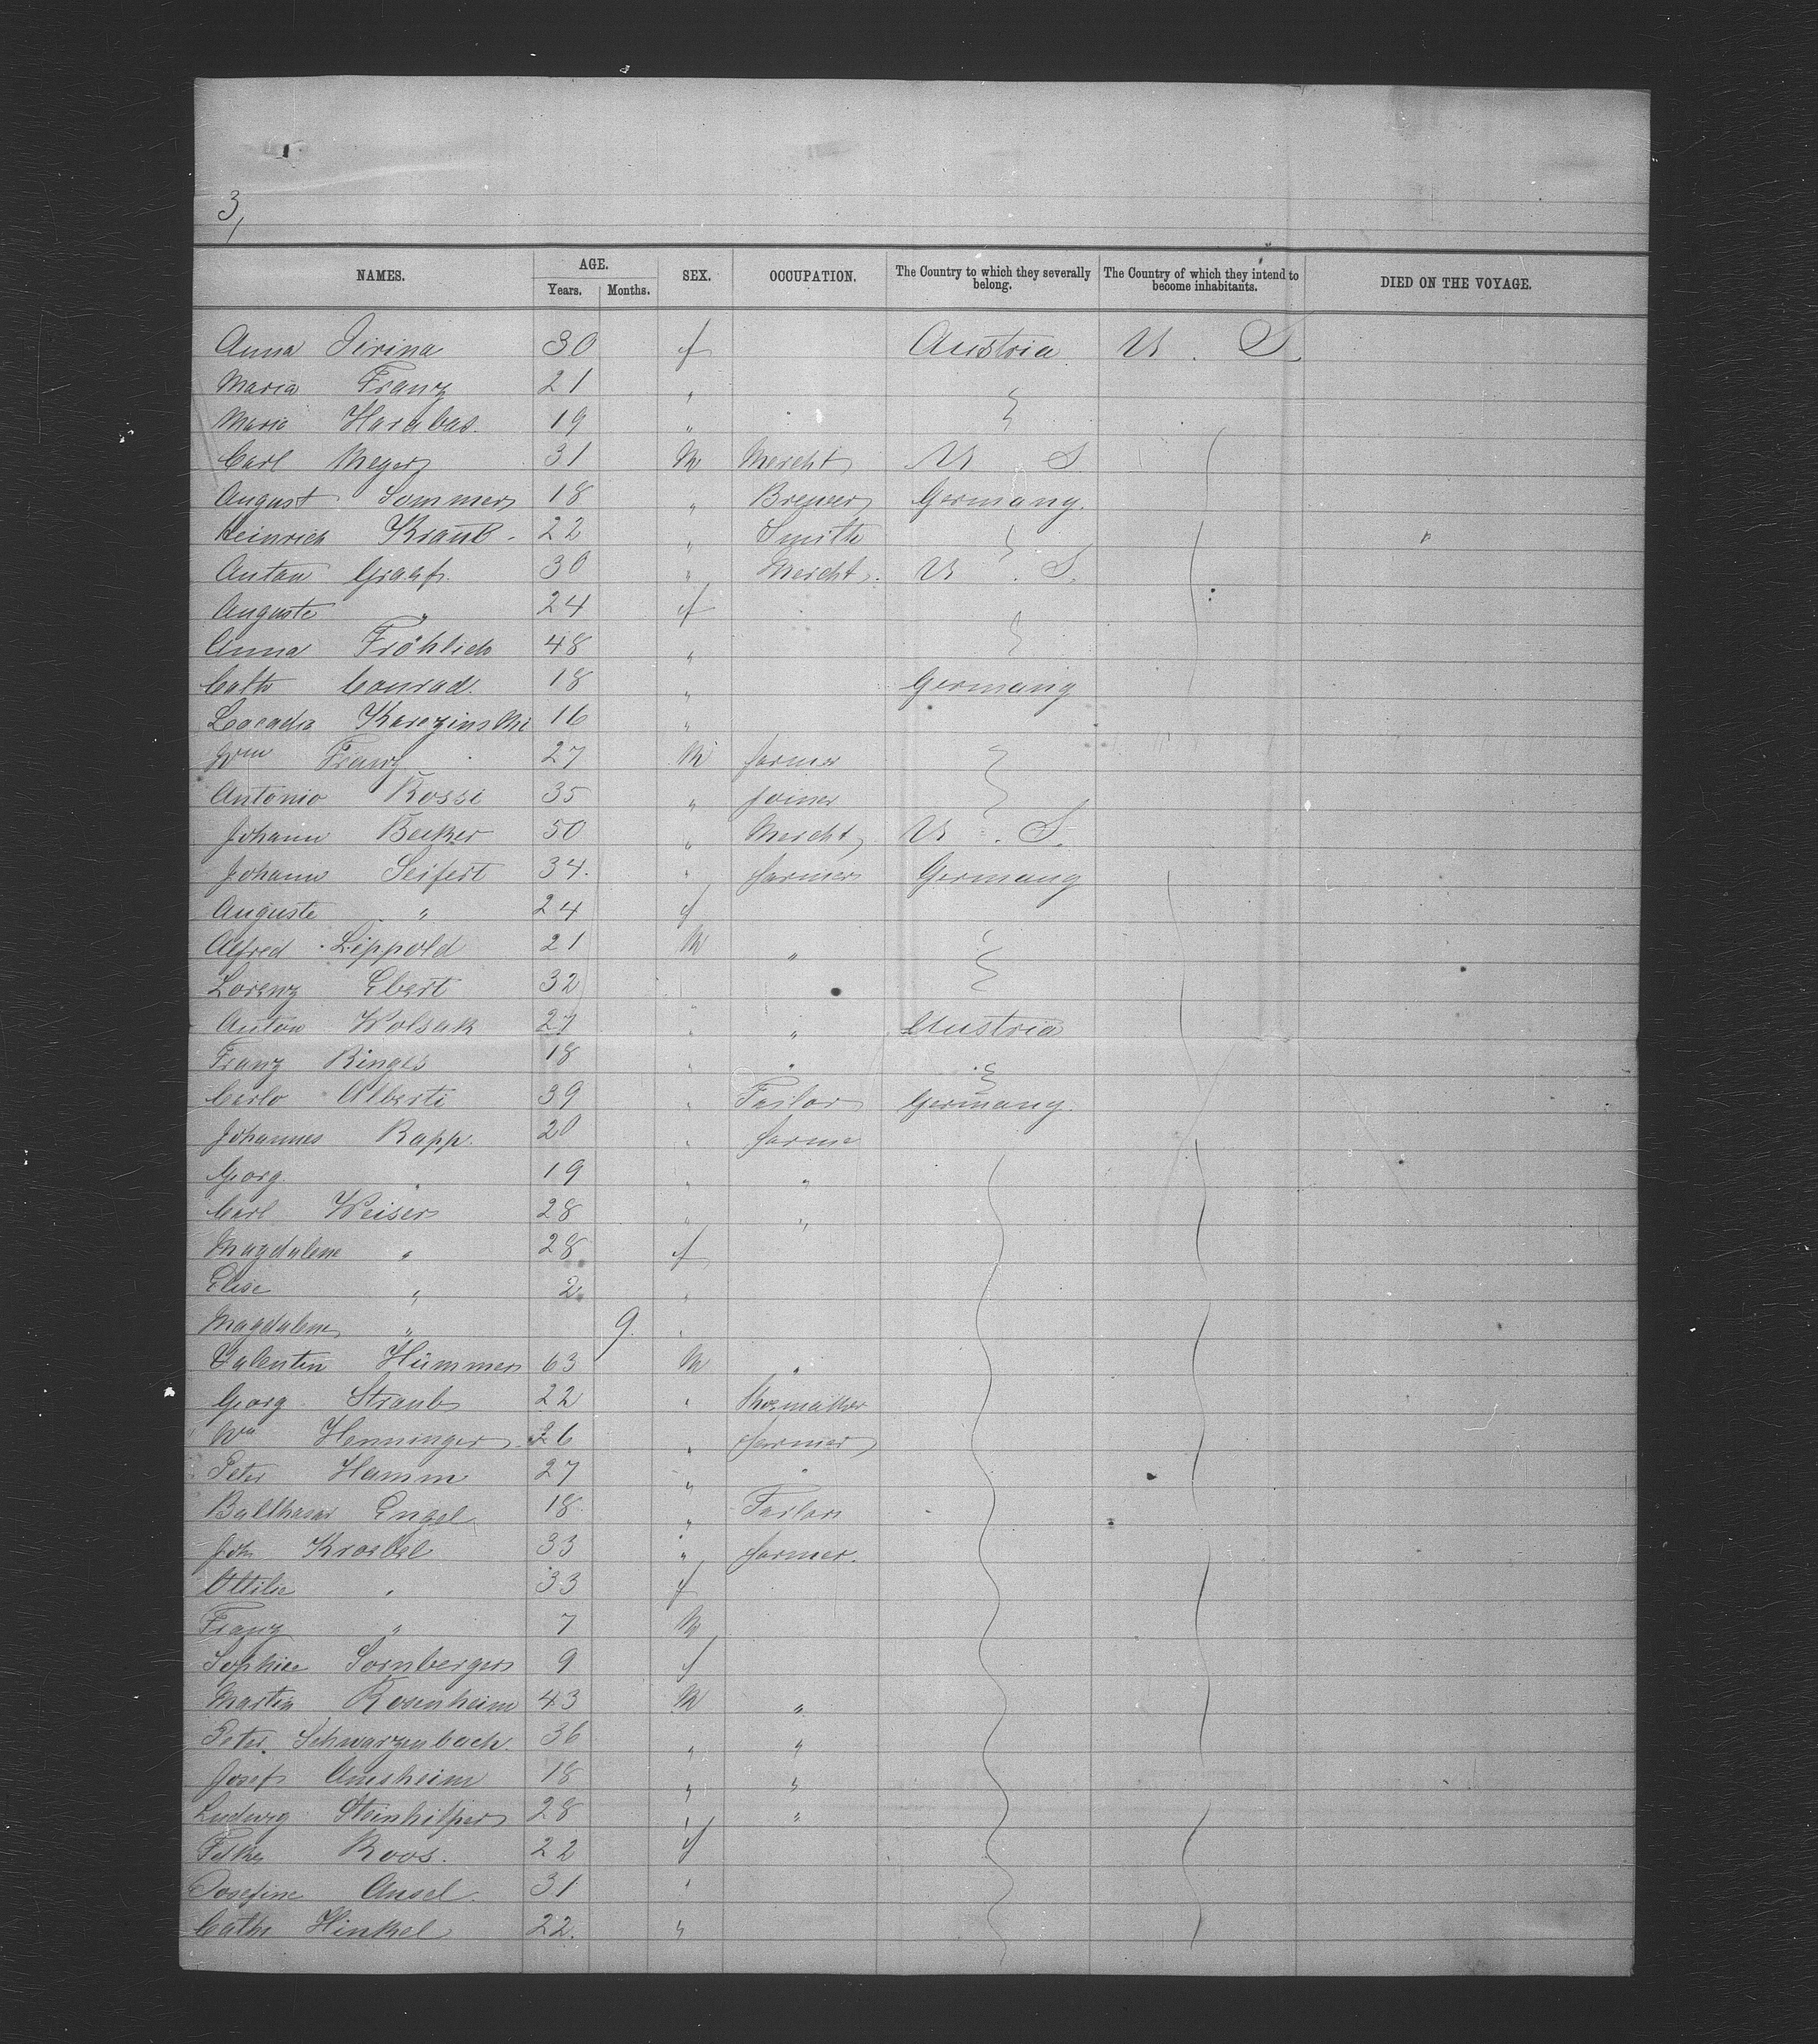 3,
NAMES. AGE. Years. Months. SEX. OCCUPATION. The Country to which they severally belong. The Country of which they intend to become inhabitants. DIED ON THE VOYAGE.
Anna Jirina 30 f Austria U. S.
Maria Franz 21 "
Maria Harabas. 19 "
Carl Meyer 31 M Mercht U S
August Sommer 18 " Brewer Germany.
Heinrich 22 " Smith
Anton Graaf. 30 " Mercht. U. S.
Auguste " 24 f
Anna Fröhlich 48 "
Cath Conrad. 18 " Germany
Leocadia 16 "
Wm Franz 27 M farmer
Antonio Rossi 35 " joiner
Johann Becker 50 " Mercht U. S.
Johann Seifert 34. " farmer Germany
Auguste " 24 f
Alfred Lippold 21 M "
Lorenz Ebert 32
Anton Wolsak 27 " " Austria
Franz Ringes 18 " "
Carlo Alberti 39 " Tailor Germany.
Johannes Rapp. 20 " farme
Georg " 19 " "
Carl Weiser 28 " "
Magdalene " 28 f
Elise " 2 "
Magdalene " 9. "
Valentin Hümmer 63 M "
Georg Straub 22 "
Wm Henninger 26 " farmer
Peter Hamm 27 " "
Balthasar Engel 18 " Tailor
Joh Kroebel 33 " farmer.
Ottilie " 33 f
Franz " 7 M
Sophie Sornberger 9 f
Martin Rosenheim 43 M "
Peter Schwarzenbach. 36 " "
Josef Amsheim 18 " "
Ludwig Steinhilper 28 " "
Roos. 22 f
Josefine Ansel. 31 "
Cath Hinkel 22. "